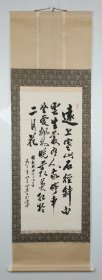 遠上寒山石徑斜白
雲生處有人家停車
坐愛楓林晚霜葉紅於
二月花